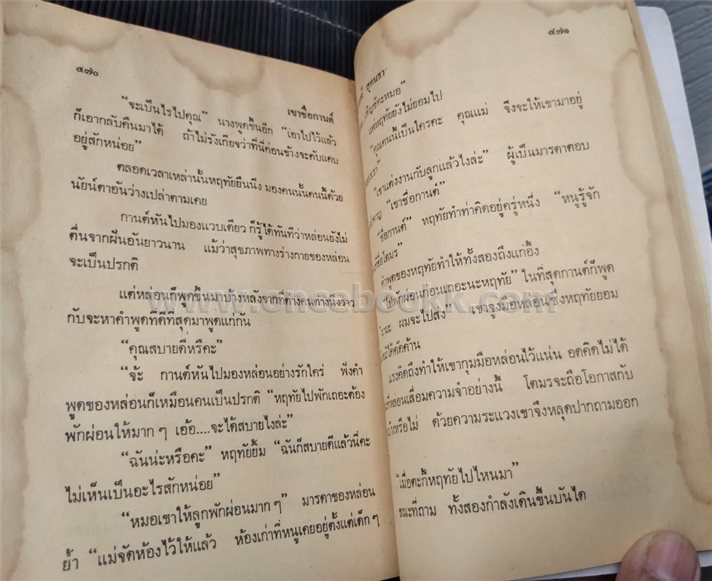 ๔๗๐
เขาชื่อกานต์
“จะเป็นไรไปคุณ” นางพูดขึ้นอีก “เอาไปไว้แล้ว
ก็เอากลับคืนมาได้ ถ้าไม่รังเกียจว่าที่นี่ค่อนข้างจะคับแคบ
อยู่สักหน่อย”
ตลอดเวลาเหล่านั้นหฤทัยยืนนิ่ง มองคนนั้นคนนี้ด้วย
นัยน์ตาอันว่างเปล่าตามเคย
กานต์หันไปมองแวบเดียว ก็รู้ได้ทันทีว่าหล่อนยังไม่
ตื่นจากฝันอันยาวนาน แม้ว่าสุขภาพทางร่างกายของหล่อน
จะเป็นปรกติ
แต่หล่อนก็พูดขึ้นมาบ้างหลังจากที่ต่างคนต่างนิ่งราว
กับจะหาคำพูดที่ดีที่สุดมาพูดแก่กัน
“คุณสบายดีหรือคะ”
“จ้ะ กานต์หันไปมองหล่อนอย่างรักใคร่ ฟังคำ
พูดของหล่อนก็เหมือนคนเป็นปรกติ “หฤทัยไปพักเถอะต้อง
พักผ่อนให้มาก ๆ เอ้อ....จะได้สบายไงล่ะ”
“ฉันน่ะหรือคะ” หฤทัยยิ้ม “ฉันก็สบายดีแล้วนี่คะ
ไม่เห็นเป็นอะไรสักหน่อย”
“หมอเขาให้ลูกพักผ่อนมาก ๆ” มารดาของหล่อน
ย้ำ “แม่จัดห้องไว้ให้แล้ว ห้องเก่าที่หนูเคยอยู่ตั้งแต่เด็ก ๆ
๔๗๑
สุคนธา
เชิญซีคะหมอ”
หฤทัยยังไม่ยอมไป
“คุณคนนี้เป็นใครคะ คุณแม่ จึงจะให้เขามาอยู่
“เขาแต่งงานกับลูกแล้วไงล่ะ” ผู้เป็นมารดาตอบ
“เขาชื่อกานต์”
“ชื่อกานต์” หฤทัยทำท่าคิดอยู่ครู่หนึ่ง “หนูรู้จัก
ชื่อโตมร”
คำพูดของหฤทัยทำให้ทั้งสองถึงแก่อึ้ง
“ไปพักผ่อนก่อนเถอะนะหฤทัย” ในที่สุดกานต์ก็พูด
ผมจะไปส่ง” เขาจูงมือหล่อนซึ่งหฤทัยยอม
ได้คัดค้าน
แรงคิดถึงทำให้เขากุมมือหล่อนไว้แน่น อดคิดไม่ได้
หล่อนเลื่อมความจำอย่างนี้ โตมรจะถือโอกาสกับ
หรือไม่ ด้วยความระแวงเขาจึงหลุดปากถามออก
“เมื่อตะกี้หฤทัยไปไหนมา”
ขณะที่ถาม ทั้งสองกำลังเดินขึ้นบันได
www.oneebookk.com